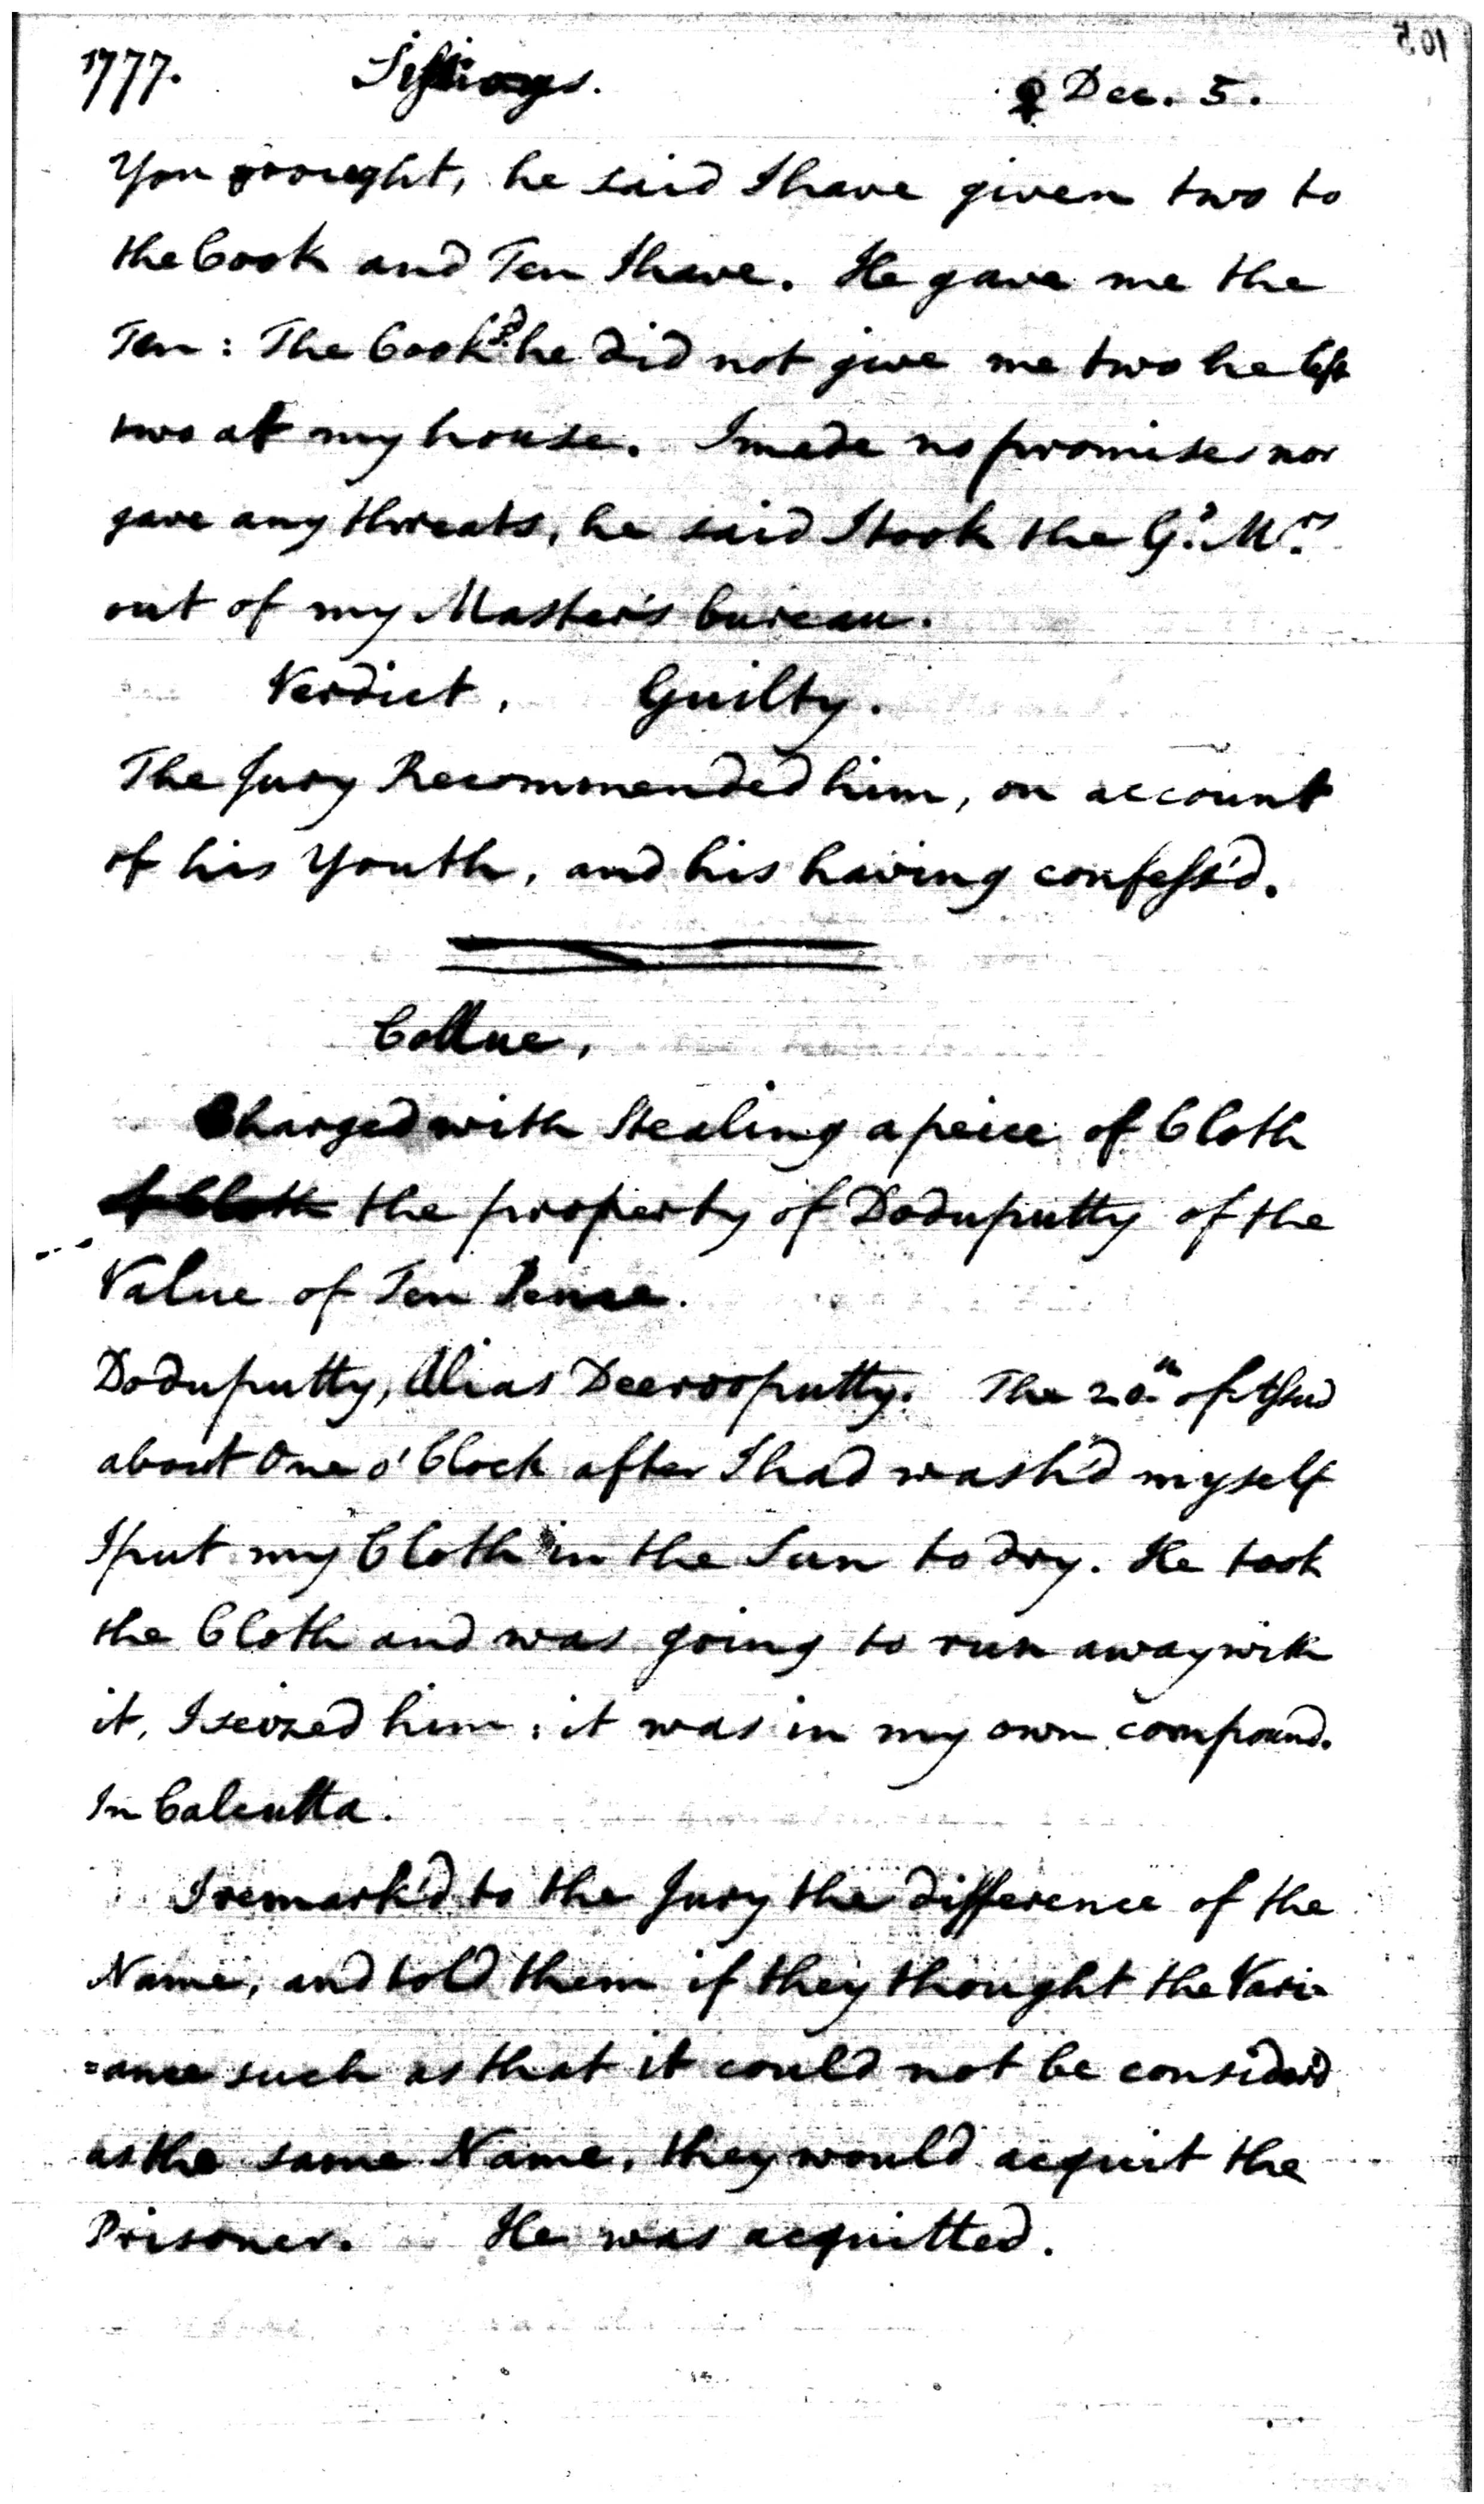 1777. Sittings. ♀ Dec. 5.
You brought, he said I have given two to
the Cook and Ten I have. He gave me the
Ten: The Cook sd. he did not give me two he left
two at my house. I made no promises nor
gave any threats, he said I took the Gd. Mrs
out of my Master's bureau.
Verdict, Guilty.
The Jury Recommended him, on account
of his Youth, and his having confess'd.
Callue,
Charged with Stealing a peice of Cloth
the property of Doduputty of the
Value of Ten Pence.
Doduputty, Alias Deerooputty. The 20th of
about One o'Clock after I had wash'd myself
I put my Cloth in the Sun to dry. He took
the Cloth and was going to run away with
it, I seized him: it was in my own compound.
In Calcutta.
I remark'd to the Jury the difference of the
Name, and told them if they thought the Vari-
=ance such as that it could not be consider'd
as the same Name, they would acquit the
Prisoner. He was acquitted.